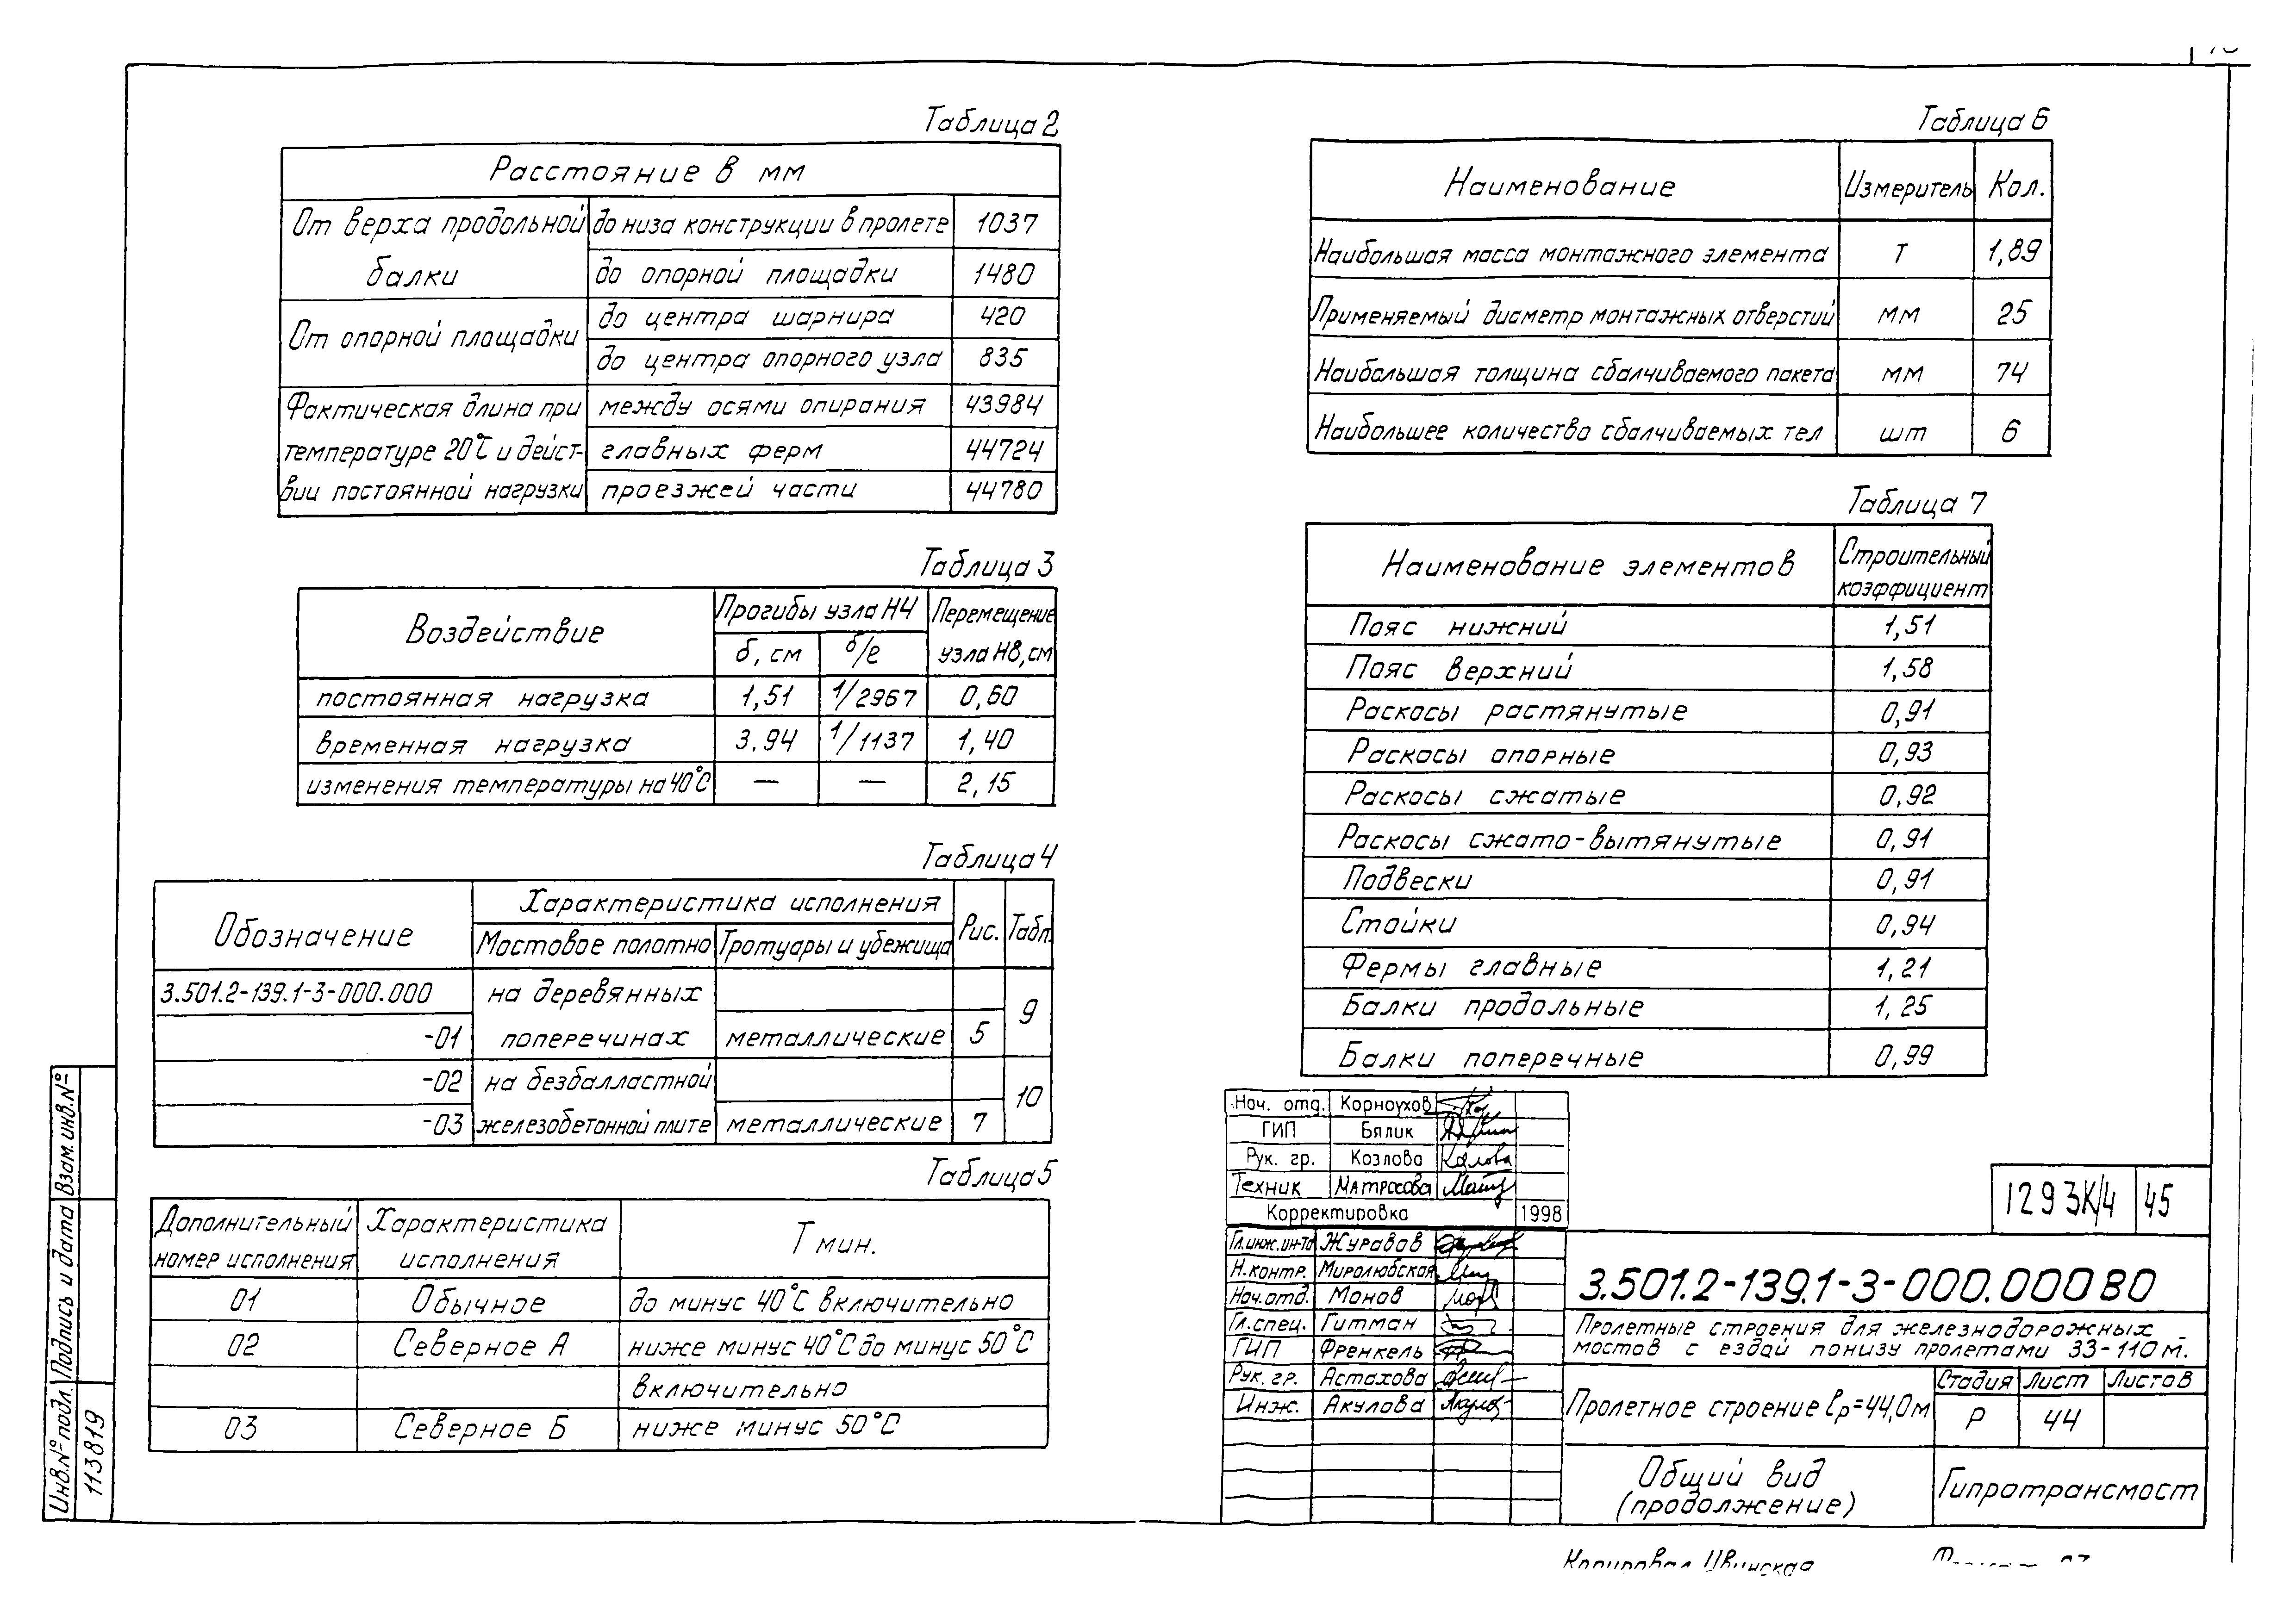 Таблица 2
Расстояние в мм
От верха продольной балки
до низа конструкции в пролете 1037
до опорной площадки 1480
От опорной площадки
до центра шарнира 420
до центра опорного узла 835
Фактическая длина при температуре 20°С и дейст-вии постоянной нагрузки
между осями опирания 43984
главных ферм 44724
проезжей части 44780
Таблица 3
Воздействие
Прогибы узла Н4
б, см
б/е
Перемещение узла Н8, см
постоянная нагрузка 1,51 1/2967 0,60
временная нагрузка 3.94 1/1137 1,40
изменения температуры на 40°С — — 2,15
Таблица 4
Обозначение
Характеристика исполнения
Рис.
Табл.
Мостовое полотно
Тротуары и убежища
3.501.2-139.1-3-000.000
на деревянных
9
-01 поперечинах металлические 5
-02 на безбалластной
10
-03 железобетонной плите металлические 7
Таблица 5
Дополнительный номер исполнения
Характеристика исполнения
Т мин.
01 Обычное до минус 40°С включительно
02 Северное А ниже минус 40°С до минус 50°С
включительно
03 Северное Б ниже минус 50°С
Таблица 6
Наименование Измеритель Кол.
Наибольшая масса монтажного элемента Т 1,89
Применяемый диаметр монтажных отверстий мм 25
Наибольшая толщина сбалчиваемого пакета мм 74
Наибольшее количество сбалчиваемых тел шт 6
Таблица 7
Наименование элементов
Строительный коэффициент
Пояс нижний 1,51
Пояс верхний 1,58
Раскосы растянутые 0,91
Раскосы опорные 0,93
Раскосы сжатые 0,92
Раскосы сжато-вытянутые 0,91
Подвески 0,91
Стойки 0,94
Фермы главные 1,21
Балки продольные 1,25
Балки поперечные 0,99
Нач. отд. Корноухов
ГИП Бялик
Рук. гр. Козлова
Техник Матросова
Корректировка 1998
Гл.инж.ин-та Журавов
Н.контр. Миролюбская
Нач.отд. Монов
Гл.спец. Гитман
ГИП Френкель
Рук. гр. Астахова
Инж. Акулова
1293К/4 45
3.501.2-139.1-3-000.000 ВО
Пролетные строения для железнодорожных
мостов с ездой понизу пролетами 33-110 м.
Пролетное строение ℓр=44,0 м
Стадия Лист Листов
Р 44
Общий вид
(продолжение)
Гипротрансмост
Инв.№ подл. Подпись и дата Взам.инв.№
113819
Копировал Цвинская